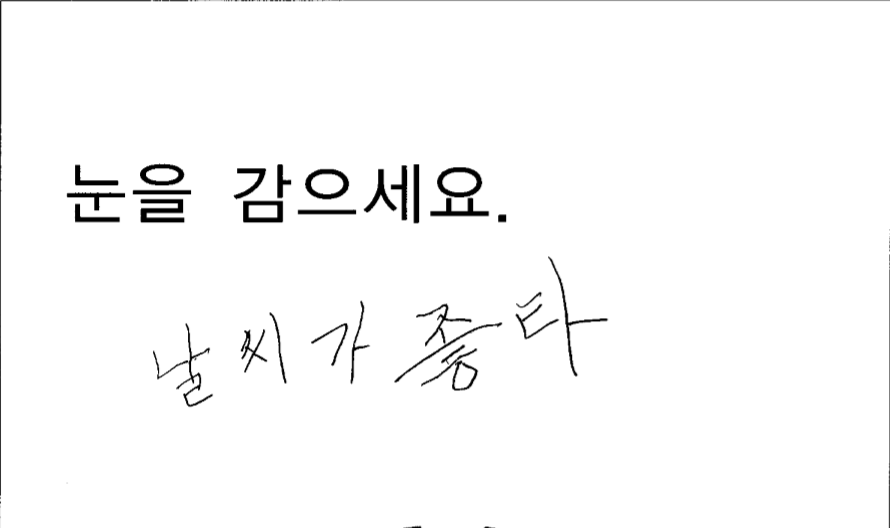 눈을 감으세요.
날씨가 좋타